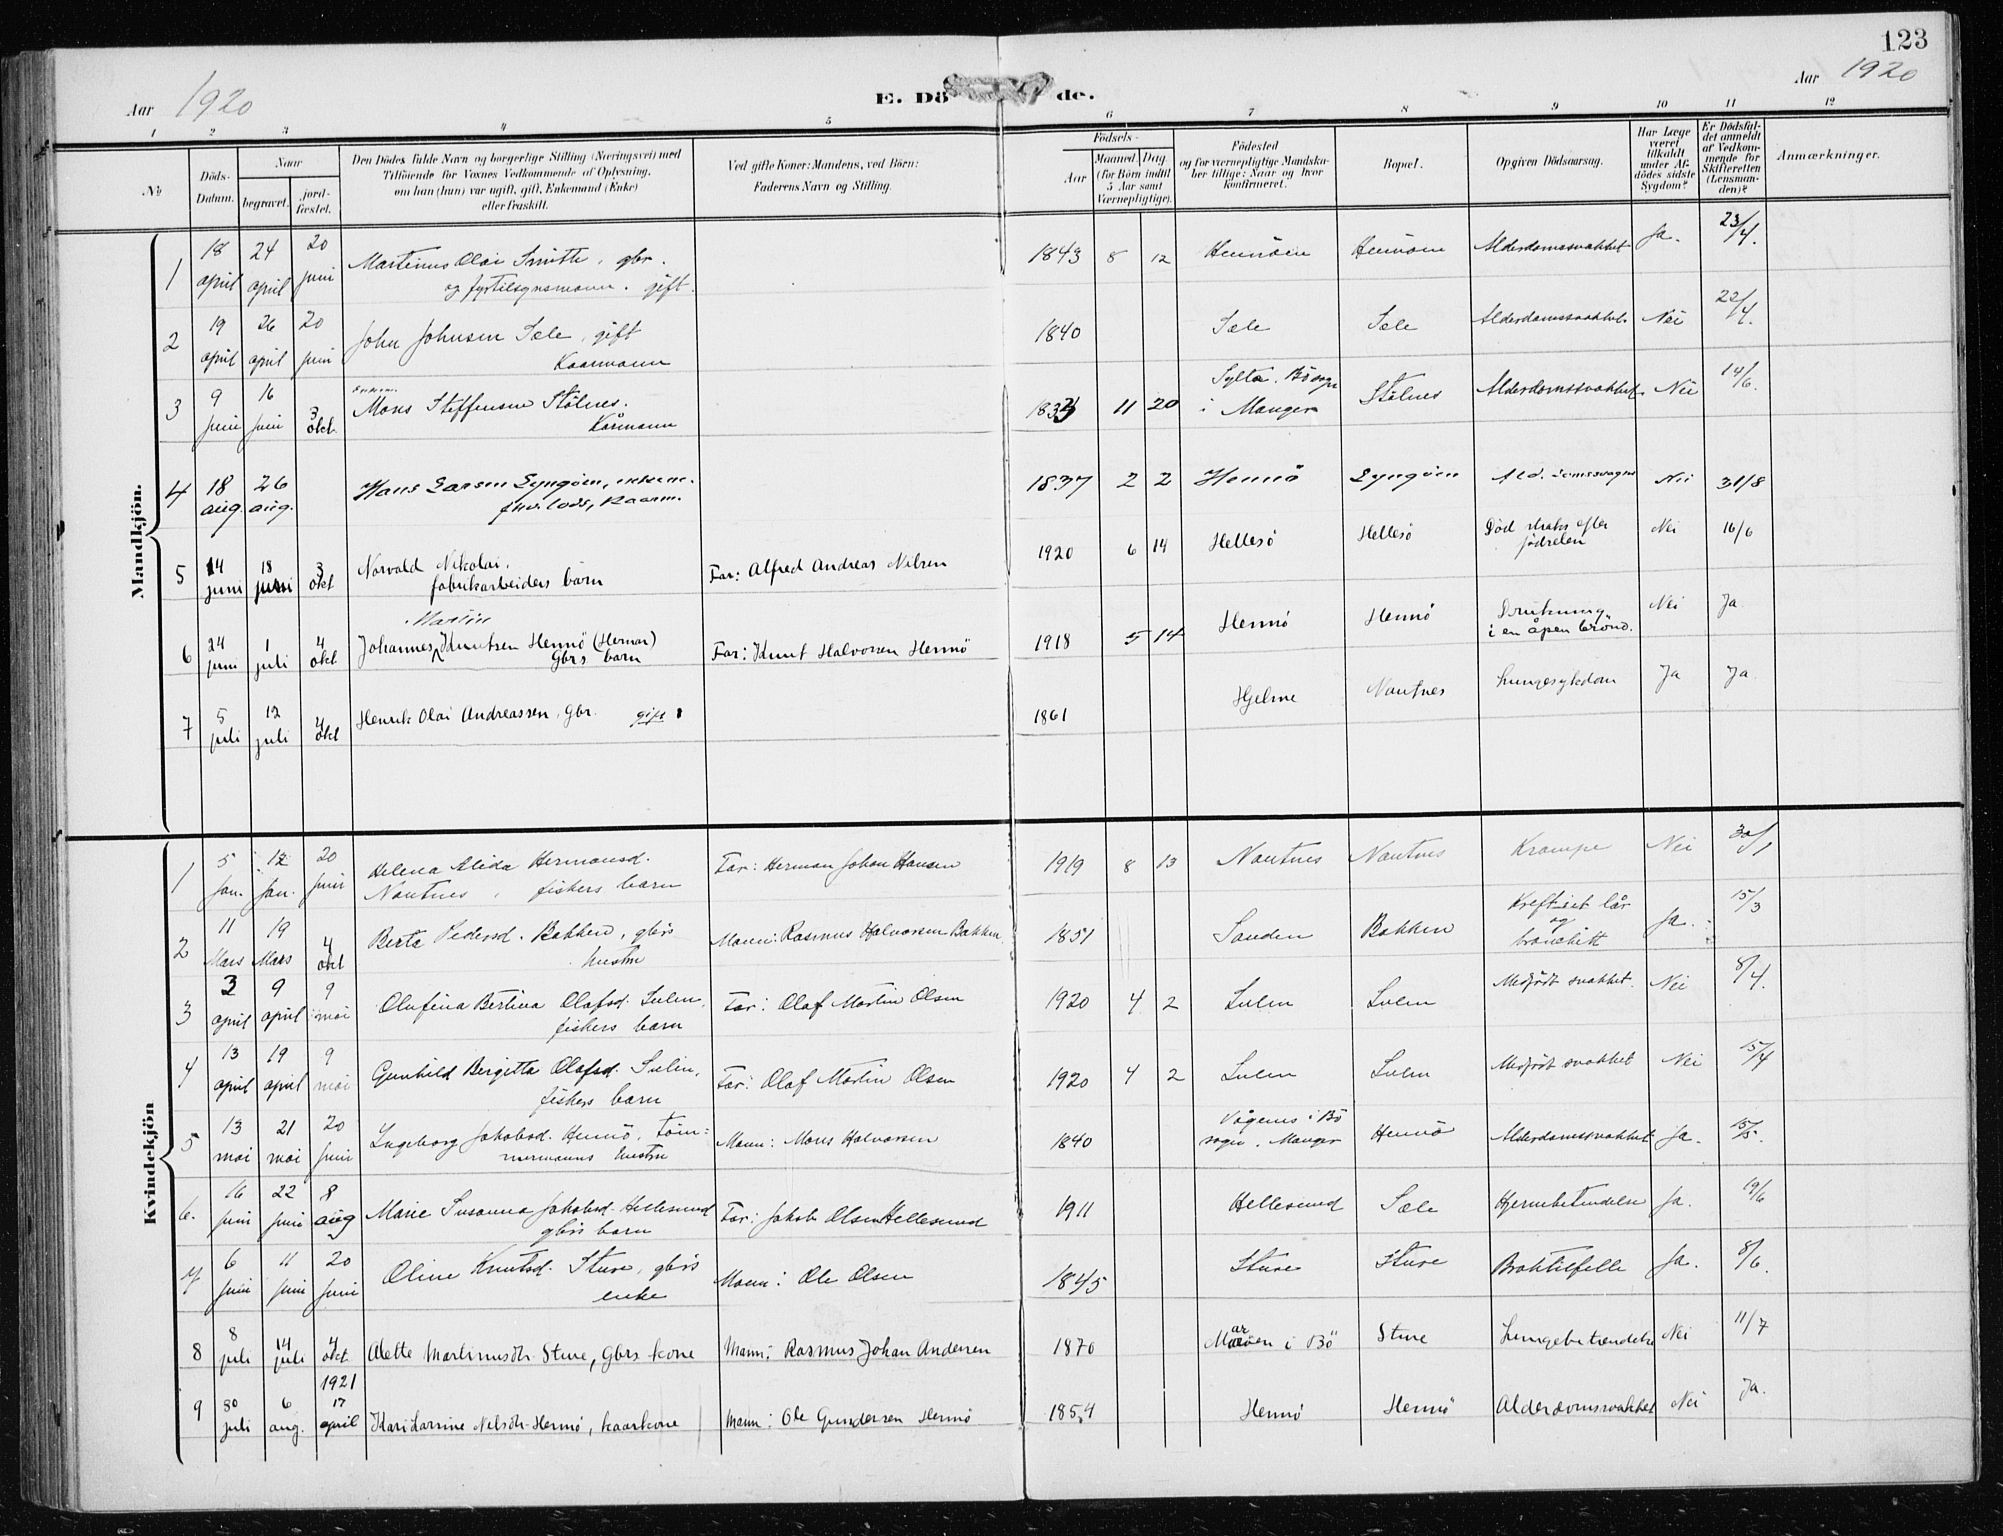 123
Aar 1920
E. Dö de.
Aar 1920
1 2 3 4 5 6 7 8 9 10 11 12
No
Döds-
Datum.
Naar
begravet.
jord-
fæstet.
Den Dödes fulde Navn og borgerlige Stilling (Næringsvei) med
Tilföiende for Voxnes Vedkommende af Oplysning,
om han (hun) var ugift, gift, Enkemand (Enke)
eller fraskilt.
Ved gifte Koner: Mandens, ved Börn:
Faderens Navn og Stilling.
Födsels-
Aar
Maaned. Dag
(for Börn indtil
5 Aar samt
Værnepligtige).
Födested
og for værnepligtige Mandska-
ber tillige: Naar og hvor
konfirmeret.
Bopæl.
Opgiven Dödsaarsag.
Har Læge
været
tilkaldt
under Af-
dödes sidste
Sygdom?
Er Dödsfal-
det anmeldt
af Vedkom-
mende for
Skifteretten
(Lensman-
den)?
Anmærkninger.
Mandkjön.
1 18 april 24 april 20 juni Martinus Olai Smith, gbr. 1843 8 12 Hennöen Hennöen Alderdomssvakhet Ja. 23/4.
og fyrtilsynsmann. gift.
2 19 april 26 april 20 juni John Johnsen Sæle, gift 1840 Sæle Sæle Alderdomssvakhet Nei 22/4.
Kaarmann
3 9 juni 16 juni 3 okt. Mons Steffensen Stölnes. 1833 11 20 Sylta. Bö sogn
i Manger Stölnes Alderdomssvakhet Nei 14/6.
Kårmann
4 18 aug. 26 aug. Hans Larsen Lyngöen, 1837 2 2 Hennö Lyngöen Nei 31/8
fhv. lods, kaarm.
5 14 juni 18 juni 3 okt Norvald Nikolai, Far: Alfred Andreas Nilsen 1920 6 14 Hellesö Hellesö Död straks efter
födselen Nei 16/6
fabrikarbeiders barn
Martin
6 24 juni 1 juli 4 okt Johannes Knutsen Hennö (Hernar) Far: Knut Halvorsen Hennö 1918 5 14 Hennö Hennö Drukning
i en åpen brönd. Nei Ja
Gbrs barn
7 5 juli 12 juli 4 okt Henrik Olai Andreassen, Gbr. gift 1861 Hjelme Nautnes Lungesykdom Ja Ja
Kvindekjön
1 5 Jan. 12 Jan. 20 juni Helena Alida Hermansd. Far: Herman Johan Hansen 1919 8 13 Nautnes Nautnes Krampe Nei 30/1
Nautnes, fiskers barn
2 11 Mars 19 Mars 4 okt Berte Pedersd. Bakken, gbrs Mann: Rasmus Halvorsen Bakken 1851 Sanden Bakken Kreft i et lår
og
bronchitt Ja. 15/3
hustru
3 3 april 9 april 9 mai Olufina Bertina Olafsd. Sulen, Far: Olaf Martin Olsen 1920 4 2 Sulen Sulen Medfödt svakhet. Nei 8/4.
fiskers barn
4 13 april 19 april 9 mai Gunhild Birgitta Olafsd. Sulen, Far: Olaf Martin Olsen 1920 4 2 Sulen Sulen Medfödt svakhet Nei 15/4
fiskers barn
5 13 mai 21 mai 20 juni Ingeborg Jakobsd. Hennö, töm- Mann: Mons Halvorsen 1840 Vågenes i Bö
sogn, Manger Hennö Alderdomssvakhet Ja. 15/5.
mermanns hustru
6. 16 juni 22 juni 8 aug Marie Susanna Jakobsd. Hellesund Far: Jakob Olsen Hellesund 1911 Hellesund Sæle Hjernebetendelse Ja. 19/6
gbrs barn
7 6 juni 11 juni 20 juni Oline Knutsd. Sture, gbrs Mann: Ole Olsen 1845 Sture Sture Braktilfelle Ja. 8/6.
enke
8 8 juli 14 juli 4 okt. Alette Martinusdtr. Sture, gbrs kone Mann: Rasmus Johan Andersen 1870 Maröen i Bö Sture Lungebetændelse Nei 11/7
9 30 juli 6 aug. 1921 17 april Kari Larsine Nelsdtr. Hennö, kaarkone Mann: Ole Gundersen Hennö 1854 Hennö Hennö Alderdomssvakhet Nei Ja.